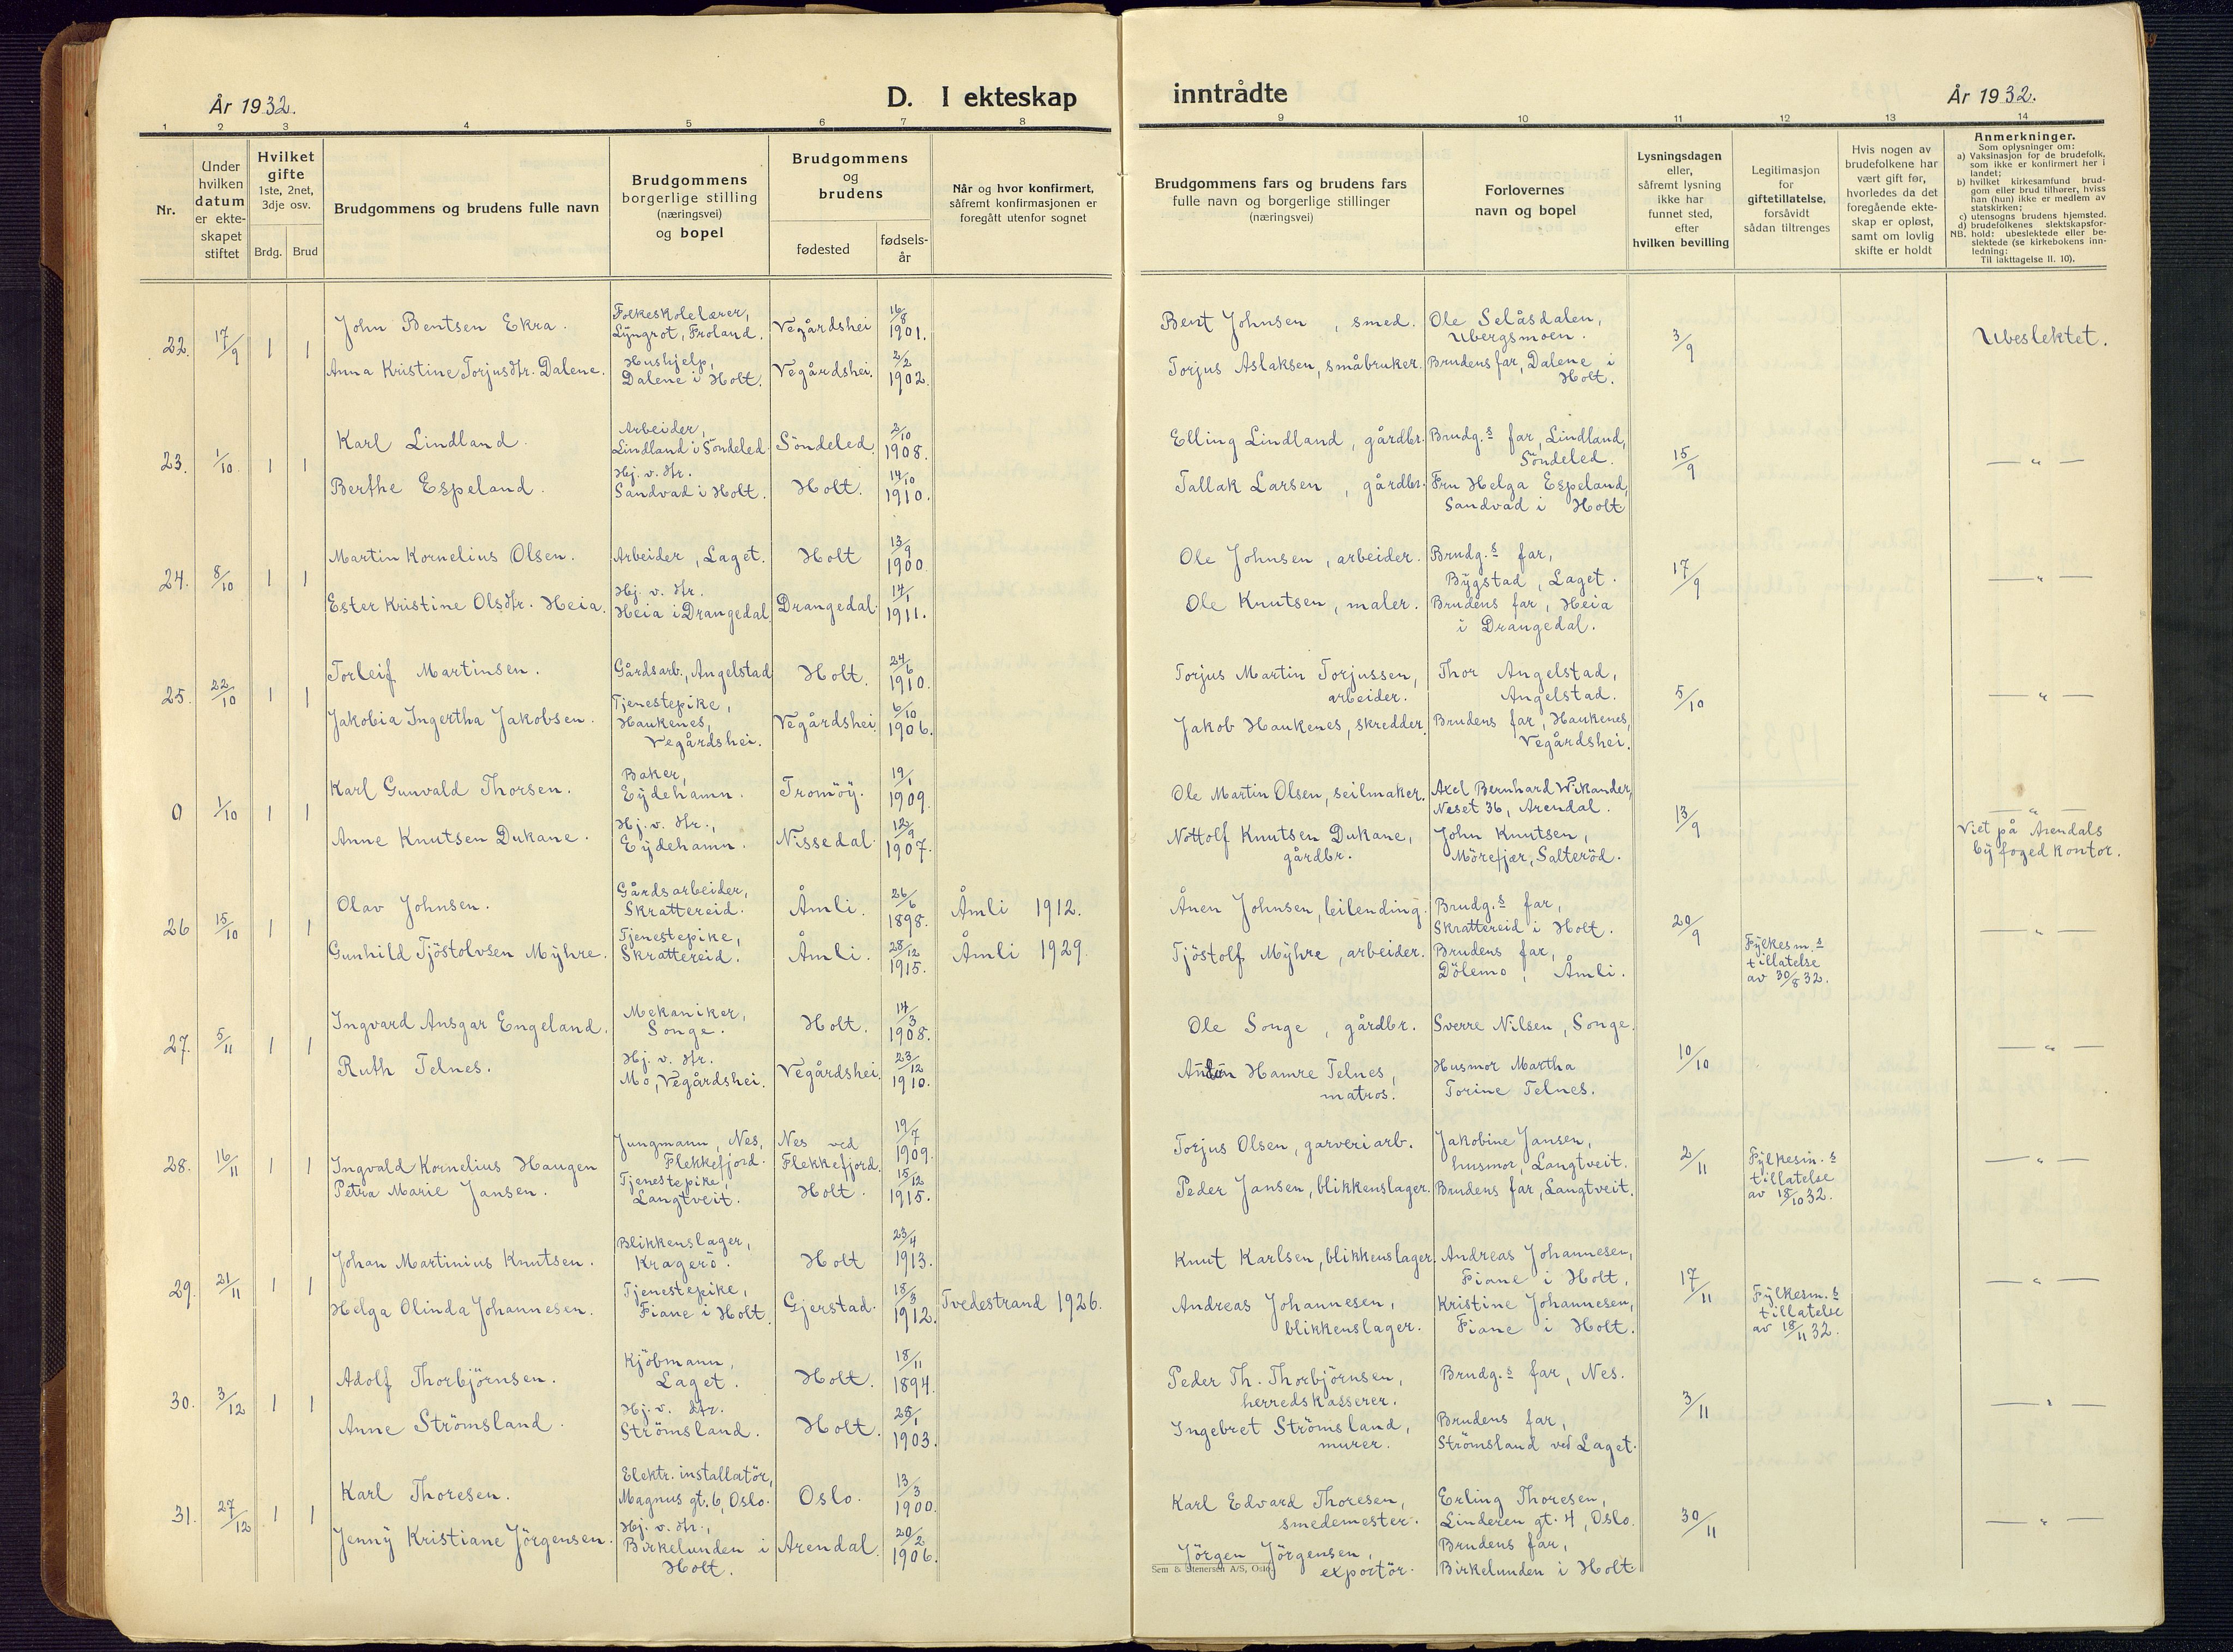 År 1932.
D. I ekteskap
inntrådte
År 1932.
1 2 3 4 5 6 7 8 9 10 11 12 13 14
Nr.
Under
hvilken
datum
er ekte-
skapet
stiftet
Hvilket
gifte
1ste, 2net,
3dje osv.
Brdg. Brud
Brudgommens og brudens fulle navn
Brudgommens
borgerlige stilling
(næringsvei)
og bopel
Brudgommens
og
brudens
fødested
fødsels-
år
Når og hvor konfirmert,
såfremt konfirmasjonen er
foregått utenfor sognet
Brudgommens fars og brudens fars
fulle navn og borgerlige stillinger
(næringsvei)
Forlovernes
navn og bopel
Lysningsdagen
eller,
såfremt lysning
ikke har
funnet sted,
efter
hvilken bevilling
Legitimasjon
for
giftetillatelse,
forsåvidt
sådan tiltrenges
Hvis nogen av
brudefolkene har
vært gift før,
hvorledes da det
foregående ekte-
skap er opløst,
samt om lovlig
skifte er holdt
Anmerkninger.
Som oplysninger om:
a) Vaksinasjon for de brudefolk,
som ikke er konfirmert her i
landet;
b) hvilket kirkesamfund brud-
gom eller brud tilhører, hviss
han (hun) ikke er medlem av
statskirken;
c) utensogns brudens hjemsted.
d) brudefolkenes slektskapsfor-
NB. hold: ubeslektede eller be-
slektede (se kirkebokens inn-
ledning:
Til iakttagelse II. 10).
22. 17/9 1 1
John Bentsen Ekra.
Folkeskolelærer,
Lyngrot, Froland.
Vegårdshei
16/8
1901.
Bent Johnsen, smed.
Ole Selåsdalen,
Ubergsmoen.
3/9
Ubeslektet.
Anna Kristine Torjusdtr. Dalene.
Hushjelp,
Dalene i Holt.
Vegårdshei.
2/2
1902.
Torjus Aslaksen, småbruker.
Brudens far, Dalene i
Holt.
23. 1/10 1 1
Karl Lindland.
Arbeider,
Lindland i Söndeled.
Söndeled.
2/10
1908.
Elling Lindland, gårdbr.
Brudg.s far, Lindland,
Söndeled.
15/9
— " —
Berthe Espeland.
Hj. v. dtr.
Sandvad i Holt.
Holt.
14/10
1910.
Tallak Larsen, gårdbr.
Fru Helga Espeland,
Sandvad i Holt
24. 8/10 1 1
Martin Kornelius Olsen.
Arbeider, Laget.
Holt
13/9
1900.
Ole Johnsen, arbeider.
Brudg.s far,
Bygstad, Laget.
17/9
— " —
Ester Kristine Olsdtr. Heia.
Hj. v. dtr.
Heia i Drangedal
Drangedal.
14/1
1911.
Ole Knutsen, maler.
Brudens far, Heia
i Drangedal.
25. 22/10 1 1
Torleif Martinsen.
Gårdsarb., Angelstad
Holt.
24/6
1910.
Torjus Martin Torjussen,
arbeider.
Thor Angelstad,
Angelstad.
5/10
— " —
Jakobia Ingertha Jakobsen.
Tjenestepike,
Haukenes,
Vegårdshei.
Vegårdshei.
6/10
1906.
Jakob Haukenes, skredder.
Brudens far, Haukenes,
Vegårdshei.
0 1/10 1 1
Karl Gunvald Thorsen.
Baker,
Eydehamn.
Tromöy.
19/1
1909.
Ole Martin Olsen, seilmaker.
Axel Bernhard Wikander,
Neset 36, Arendal.
13/9
— " —
Viet på Arendals
byfogedkontor.
Anne Knutsen Dukane.
Hj. v. dtr.,
Eydehamn.
Nissedal.
12/9
1907.
Nottolf Knutsen Dukane,
gårdbr.
John Knutsen,
Mörefjær, Salteröd.
26 15/10 1 1
Olav Johnsen.
Gårdsarbeider,
Skrattereid.
Åmli.
26/6
1898.
Åmli 1912.
Ånen Johnsen, leilending.
Brudg.s far,
Skrattereid i Holt.
20/9
— " —
Gunhild Tjöstolvsen Myhre.
Tjenestepike,
Skrattereid.
Åmli.
28/12
1915.
Åmli 1929.
Tjöstolf Myhre, arbeider.
Brudens far,
Dölemo, Åmli.
Fylkesm.s
tillatelse
av 30/8 32.
27. 5/11 1 1
Ingvard Ansgar Engeland.
Mekaniker,
Songe.
Holt.
14/3
1908.
Ole Songe, gårdbr.
Sverre Nilsen, Songe.
10/10
— " —
Ruth Telnes.
Hj. v. dtr.
Mo, Vegårdshei.
Vegårdshei.
23/12
1910.
Hamre Telnes,
matros.
Husmor Martha
Torine Telnes.
28. 16/11 1 1
Ingvald Kornelius Haugen
Jungmann, Nes,
Flekkefjord.
Nes ved
Flekkefjord.
19/7
1909.
Torjus Olsen, garveriarb.
Jakobine Jansen,
husmor, Langtveit.
2/11
Fylkesm.s
tillatelse
av 18/10 32.
— " —
Petra Marie Jansen.
Tjenestepike,
Langtveit.
Holt.
15/12
1915.
Peder Jansen, blikkenslager.
Brudens far, Langtveit.
29. 21/11 1 1
Johan Martinius Knutsen.
Blikkenslager,
Kragerö.
Holt
23/4
1913.
Knut Karlsen, blikkenslager.
Andreas Johannesen,
Fiane i Holt,
17/11
Fylkesm.s
tillatelse
av 18/11 32.
— " —
Helga Olinda Johannesen.
Tjenestepike,
Fiane i Holt.
Gjerstad.
18/3
1912.
Tvedestrand 1926.
Andreas Johannesen,
blikkenslager.
Kristine Johannesen,
Fiane i Holt.
30. 3/12 1 1
Adolf Thorbjörnsen.
Kjöbmann,
Laget.
Holt.
18/11
1894.
Peder Th. Thorbjörnsen,
herredskasserer.
Brudg.s far, Nes.
3/11
— " —
Anne Strömsland.
Hj. v. dtr.
Strömsland.
Holt.
25/1
1903.
Ingebret Strömsland,
murer.
Brudens far,
Strömsland ved Laget.
31. 27/12 1 1
Karl Thoresen.
Elektr. installatör,
Magnus gt. 6, Oslo.
Oslo.
13/3
1900.
Karl Edvard Thoresen,
smedemester.
Erling Thoresen,
Linderen gt. 4, Oslo.
30/11
— " —
Jenny Kristiane Jörgensen.
Hj. v. dtr.,
Birkelunden i
Holt.
Arendal.
20/2
1906.
Jörgen Jörgensen,
exportör.
Brudens far,
Birkelunden i Holt.
Sem & Stenersen A/S, Oslo